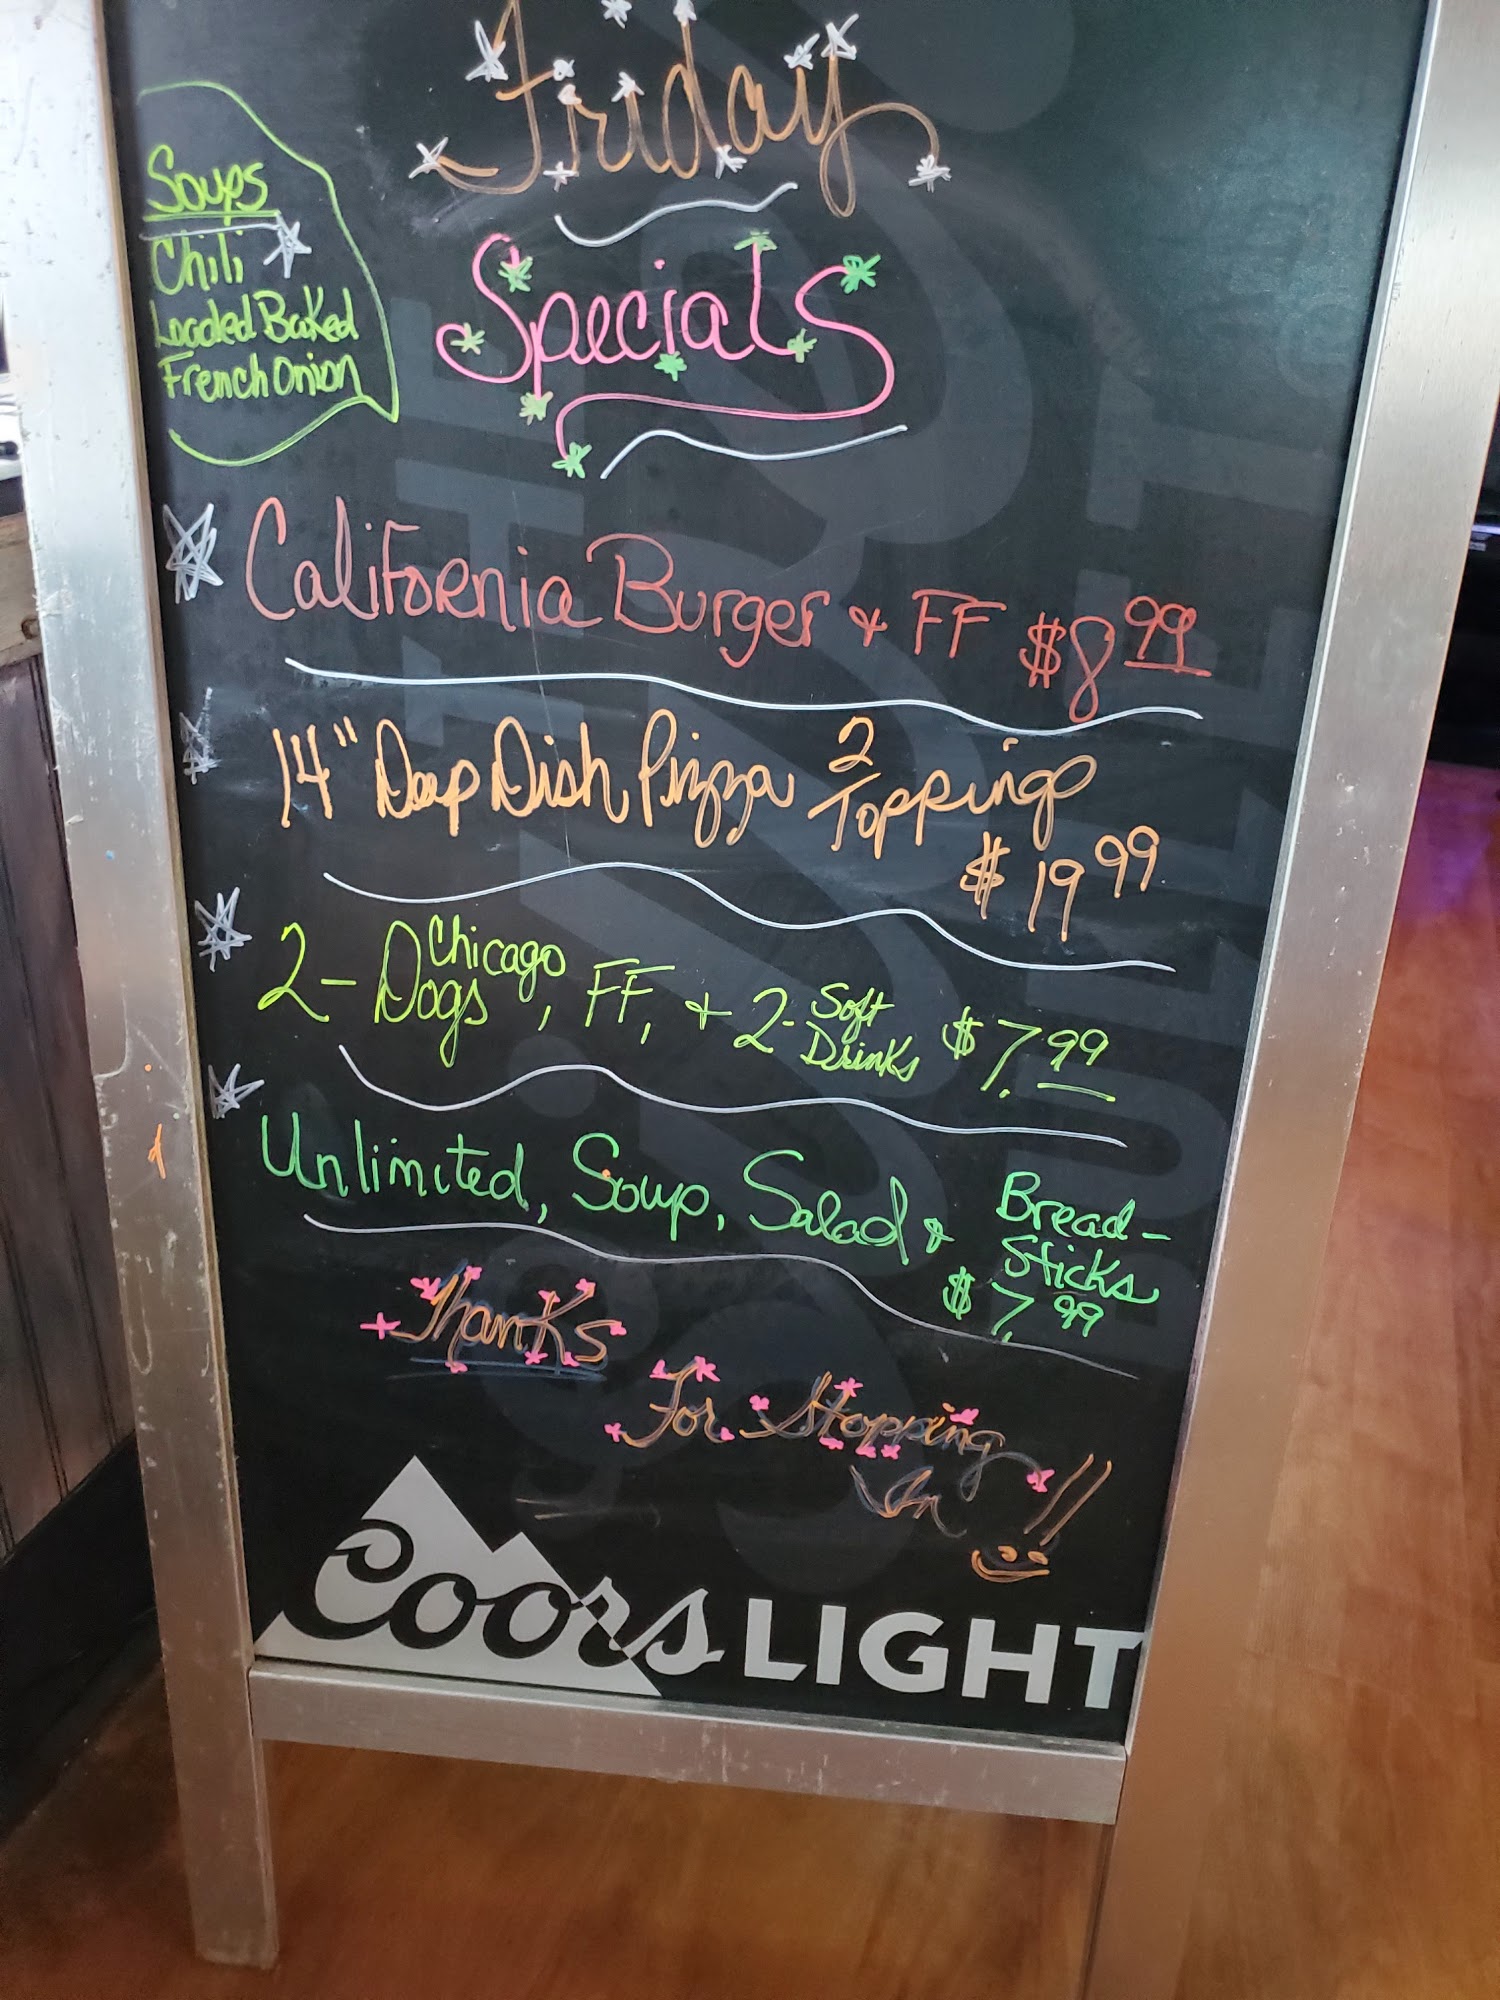 Friday
Specials
Soups
Chili
Loaded Baked
French Onion
California Burger & FF $8.99
14" Deep Dish Pizza 2 Toppings
$19.99
2 - Chicago Dogs, FF, + 2 - Soft Drinks $7.99
Unlimited, Soup, Salad & Bread-
Sticks
$7.99
Thanks
For Stopping
In!!
Coors LIGHT